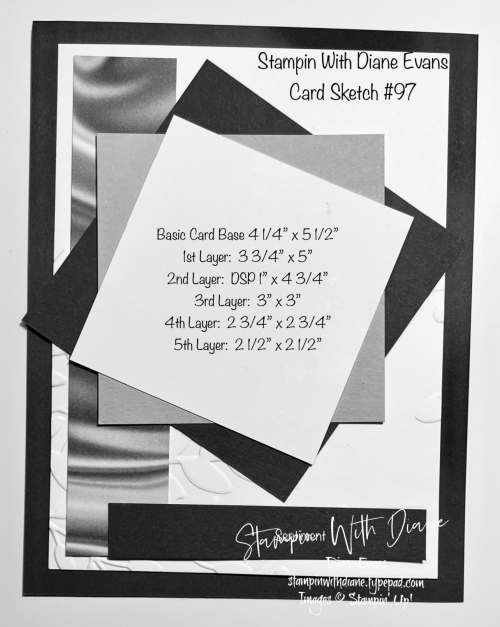 Stampin With Diane Evans
Card Sketch #97
Basic Card Base 4 1/4" x 5 1/2"
1st Layer: 3 3/4" x 5"
2nd Layer: DSP 1" x 4 3/4"
3rd Layer: 3" x 3"
4th Layer: 2 3/4" x 2 3/4"
5th Layer: 2 1/2" x 2 1/2"
Sentiment
Stampin With Diane
Diane Evans
stampinwithdiane.typepad.com
Images © Stampin' Up!